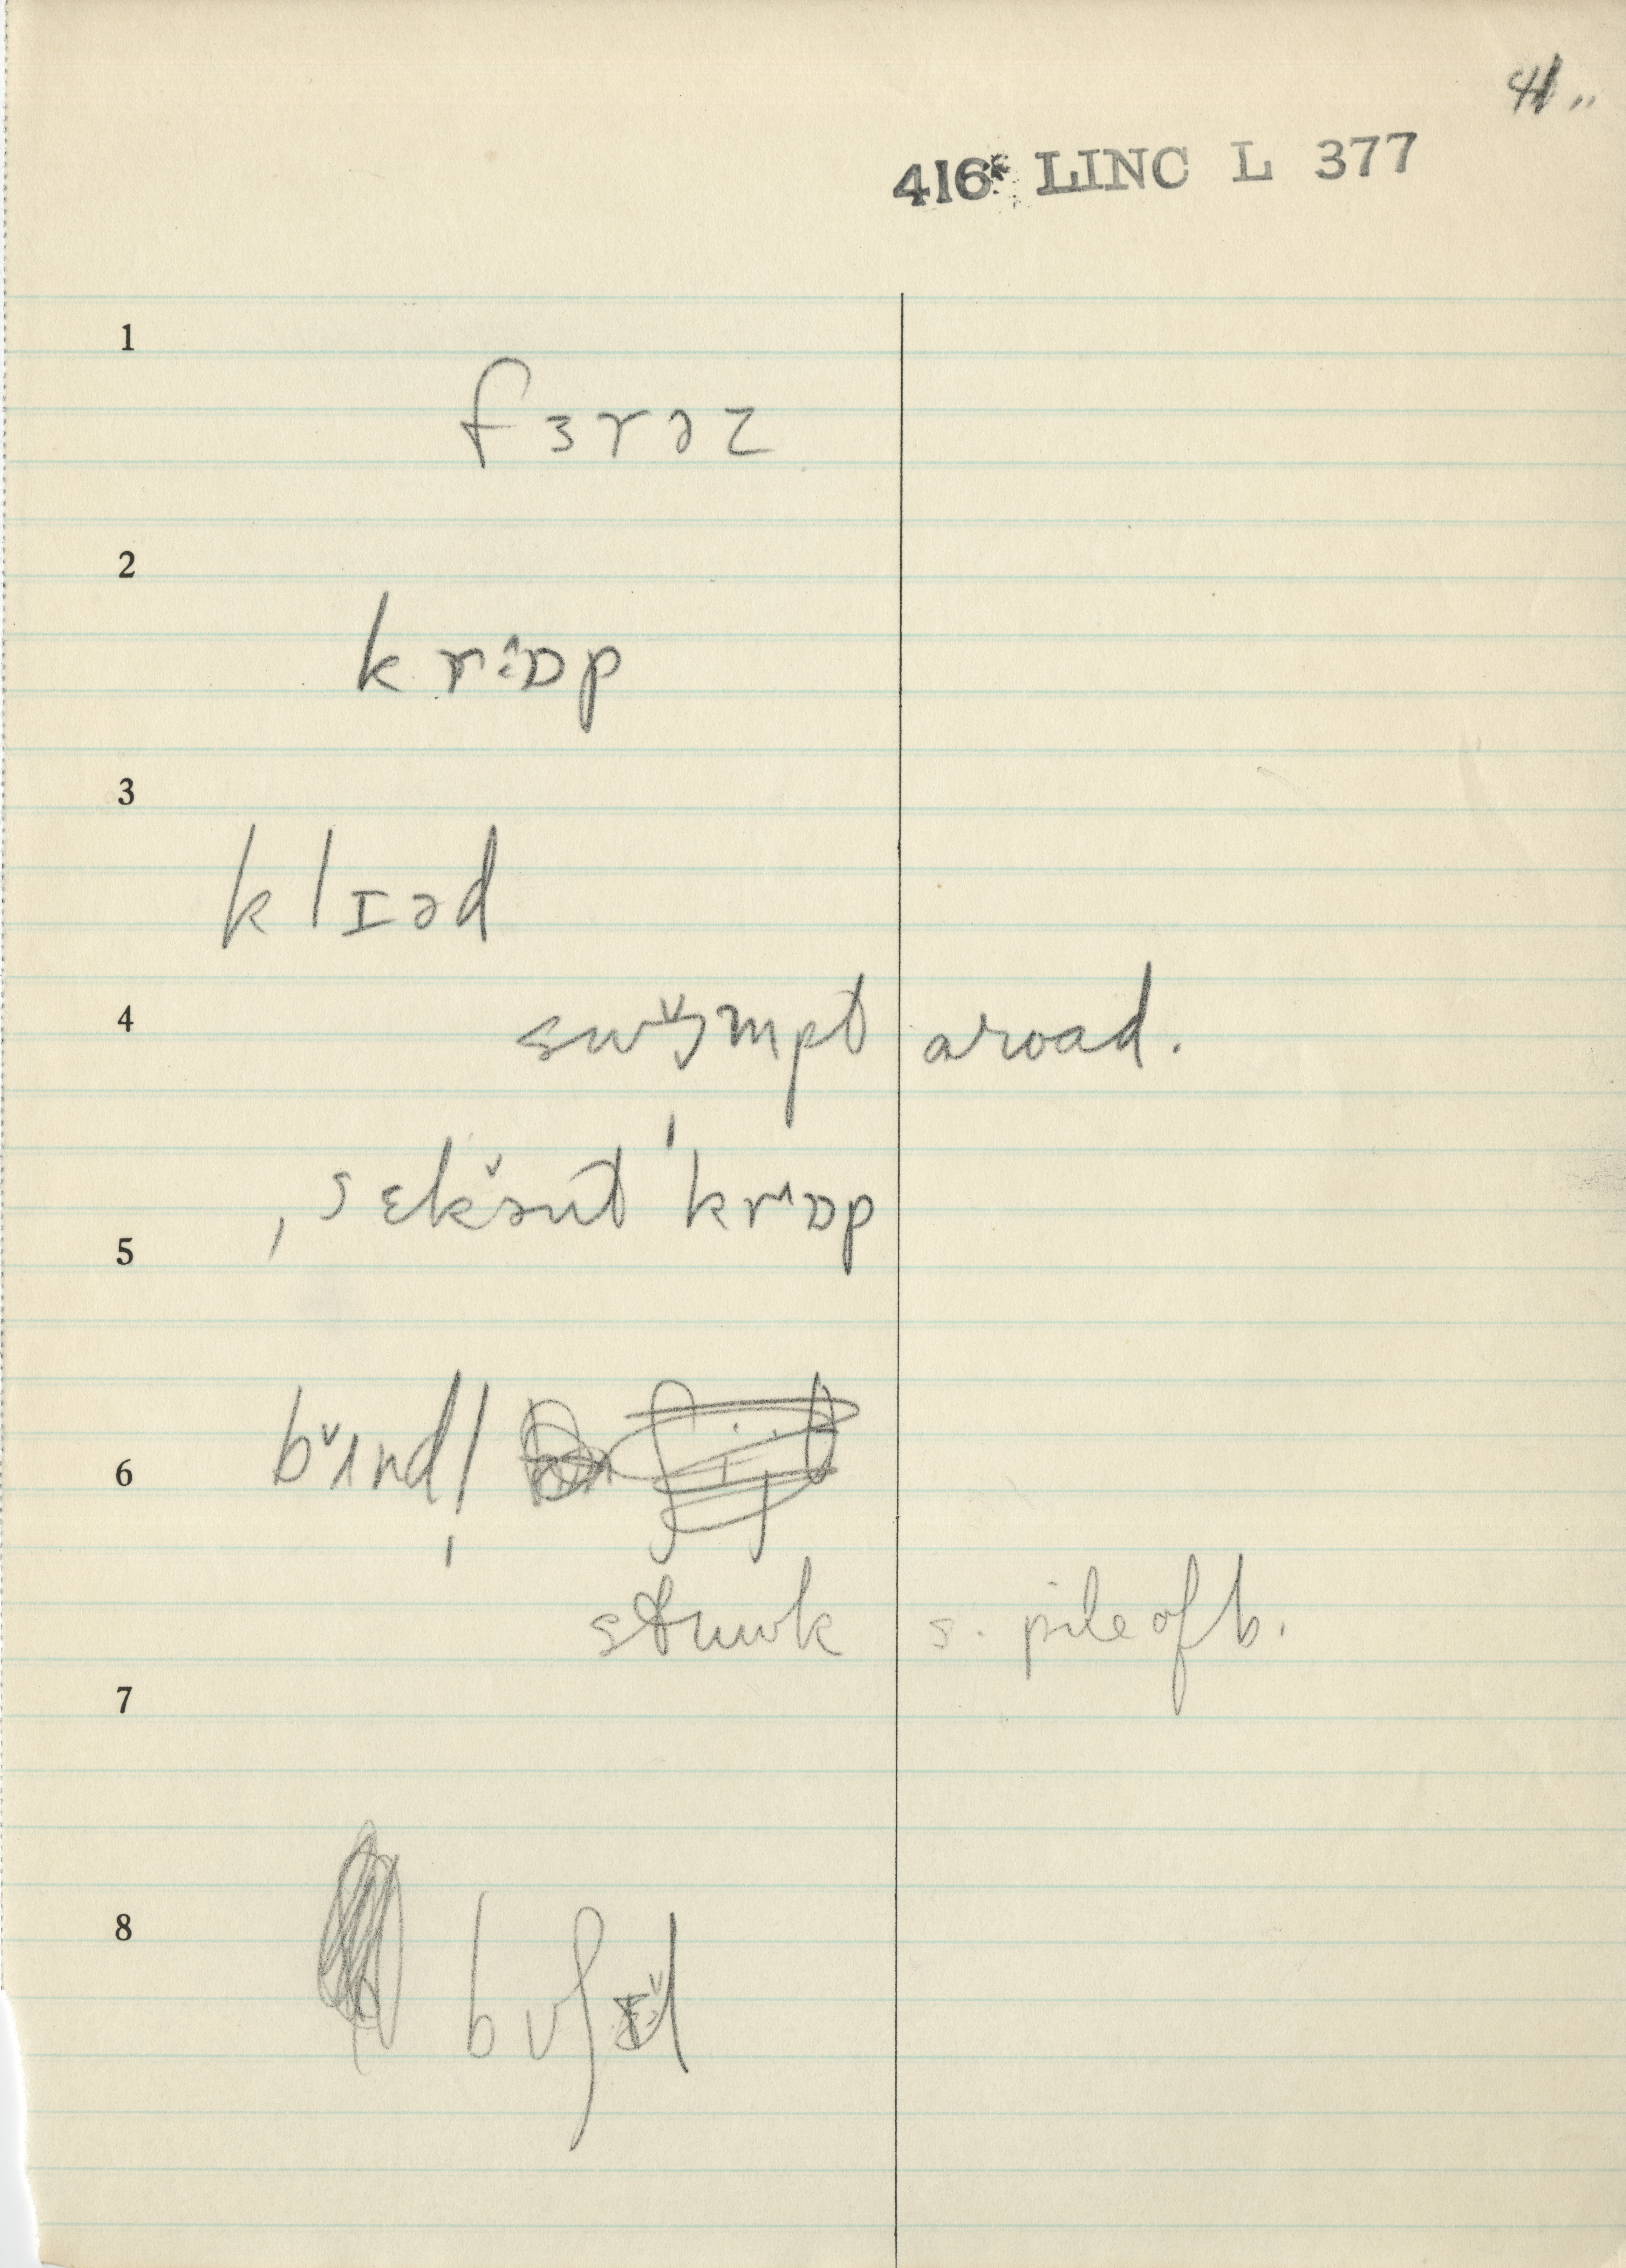 41..
416* LINC L 377
1
fɜrəz
2
krɒ̂p
3
klɪəd
4
swɔ̌mpt aroad.
ˌsɛkə̌nt ˈkrɒ̂p
5
bʌ̌ndl̩
6
s. pile of b.
7
8
bʊʃɪ̌l